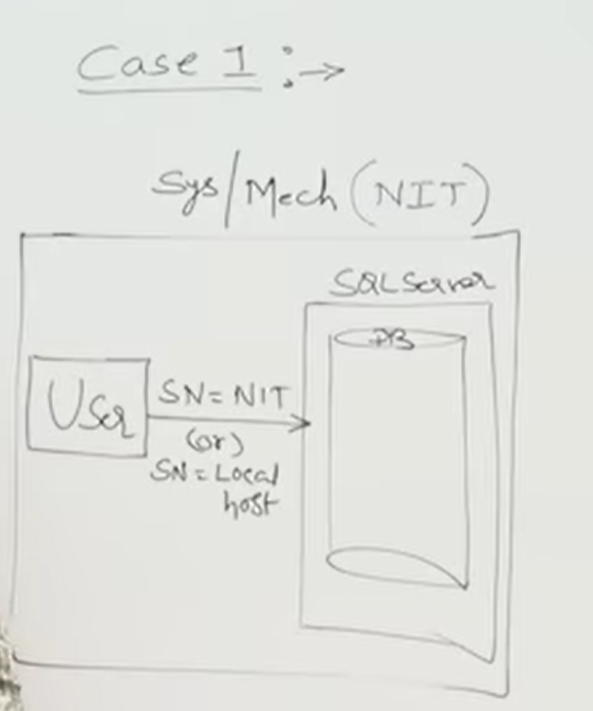 Case 1 :→
Sys/Mech (NIT)
SQL Server
DB
User
SN = NIT
(or)
SN = Local
host